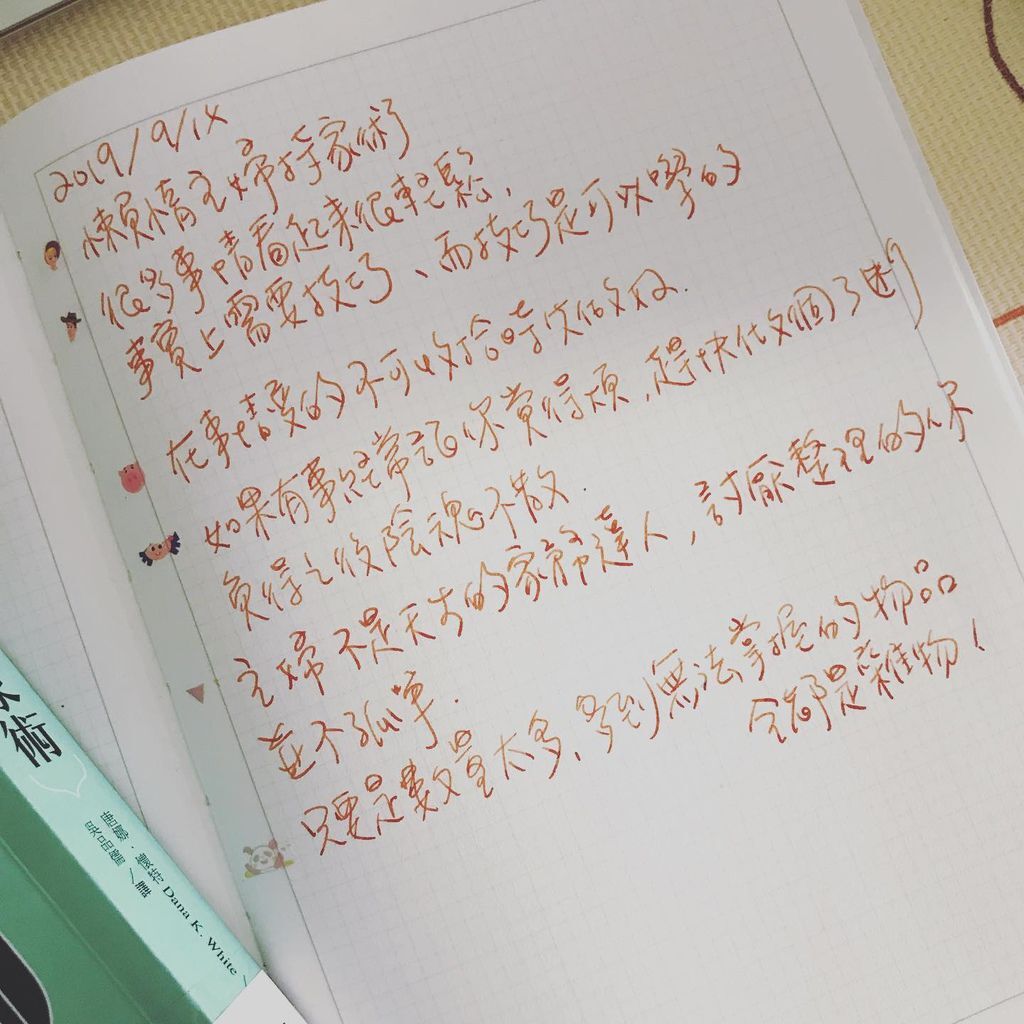 2019/9/14
懶惰主婦持家術
很多事情看起來很輕鬆,
事實上需要技巧、而技巧是可以學的
在事情變的不可收拾時先做好.
如果有事經常讓你覺得煩,趕快做個了斷
免得它做陰魂不散.
主婦不是天才的家務達人,討厭整理的你
並不孤單.
只要是數量太多、多到無法掌握的物品
全都是雜物!
術
德特 Dana K. White
吳品儒 / 譯